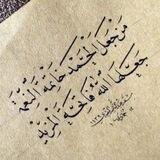 من جعل الحمد خاتمة النعمة
جعله الله فاتحة المزيد